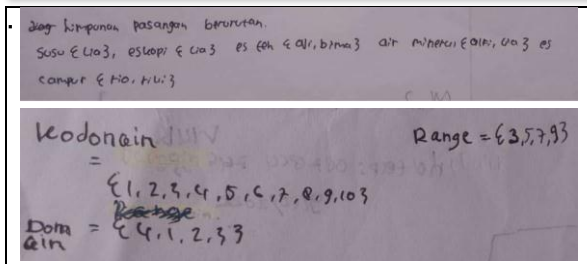 diag himpunan pasangan berurutan.
susu { Lia }, eskopi { Lia } es teh { alvi, birma } air mineral { alni, lia } es
campur { rio, rivi }
Kodomain
=
{1, 2, 3, 4, 5, 6, 7, 8, 9, 10}
Range = {3,5,7,9}
Domain = {4, 1, 2, 3}